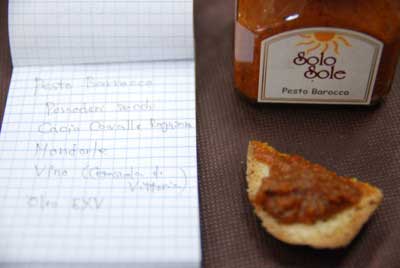 Pesto Barocco
Pomodori secchi
Cacio Cavallo Ragusano
Mandorle
Vino (Cerasuolo di
Vittoria)
Olio EXV
Solo
Sole
Pesto Barocco